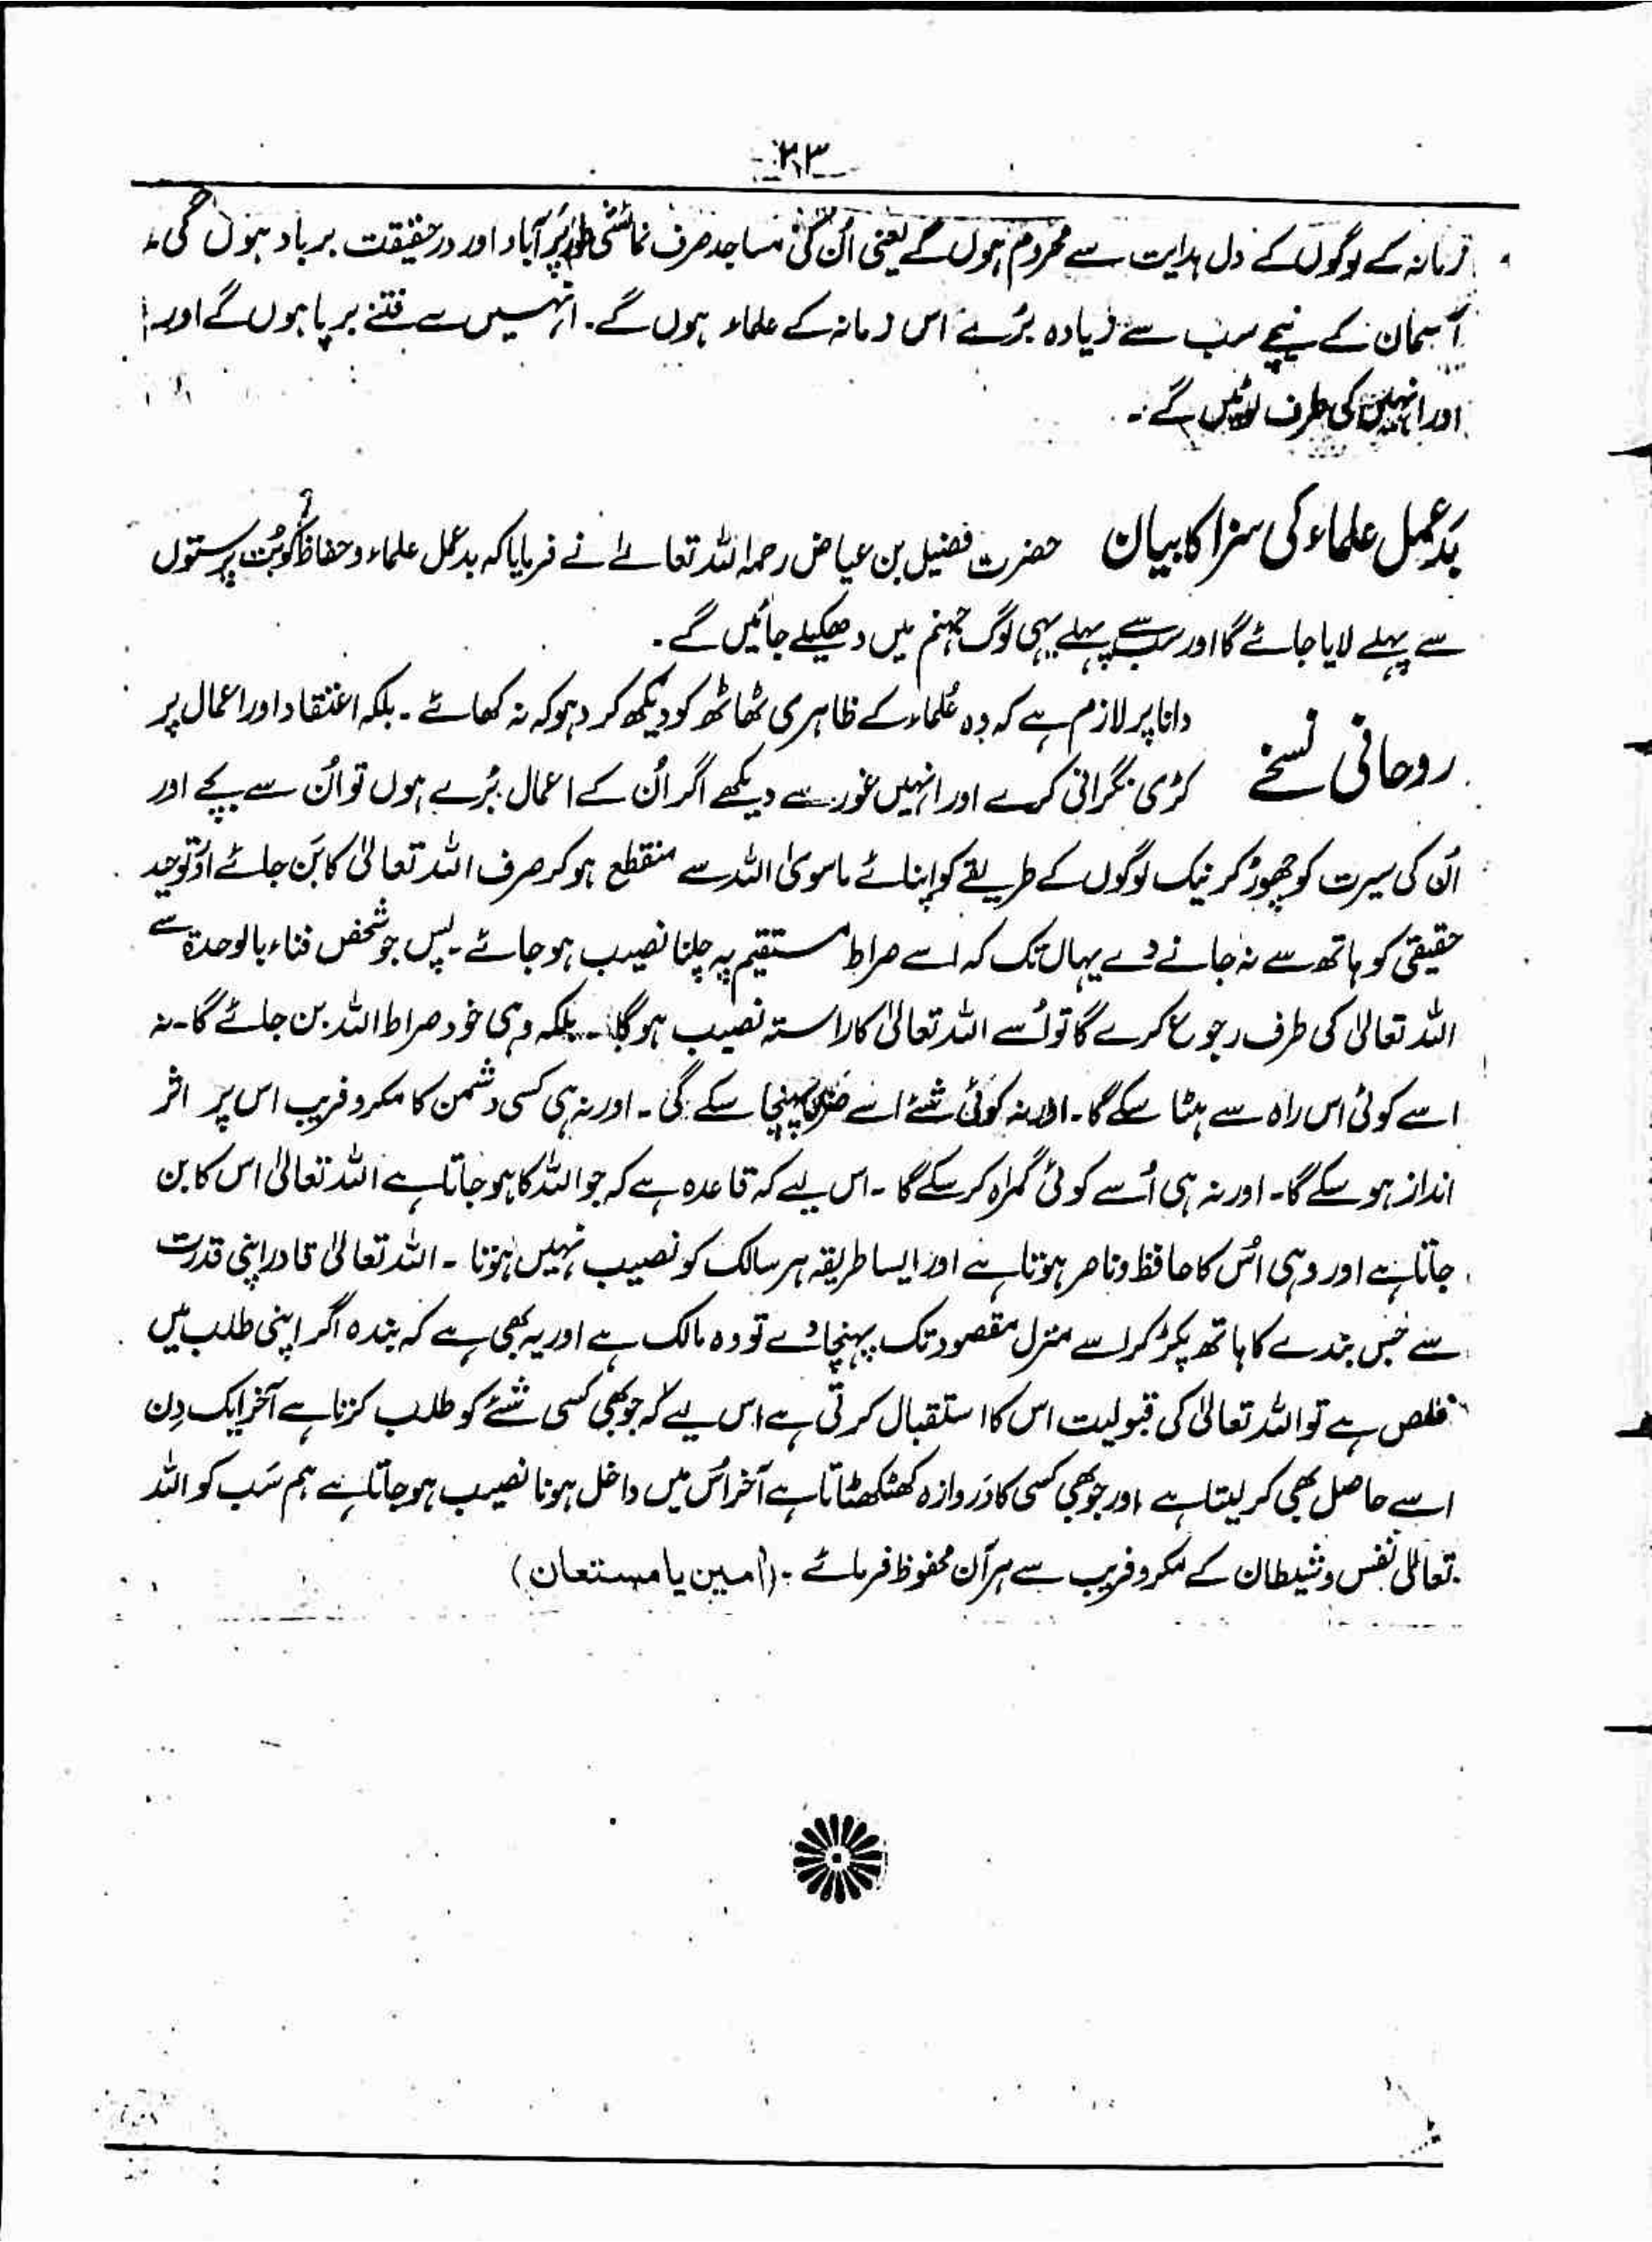 ۲۳
زمانہ کے لوگوں کے دل ہدایت سے محروم ہوں گے یعنی اُن کی مساجد صرف نمائشی طور پر آباد اور درحقیقت برباد ہوں گی۔
آسمان کے نیچے سب سے زیادہ بُرے اس زمانہ کے علماء ہوں گے۔ انہیں سے فتنے برپا ہوں گے اور
اور انہیں کی طرف لوٹیں گے۔
بدعمل علماء کی سزا کا بیان حضرت فضیل بن عیاض رحمہ اللہ تعالےٰ نے فرمایا کہ بدعمل علماء و حفاظ کو بُت پرستوں
سے پہلے لایا جائے گا اور سب سے پہلے یہی لوگ جہنم میں دھکیلے جائیں گے۔
دانا پر لازم ہے کہ وہ علماء کے ظاہری ٹھاٹھ کو دیکھ کر دہوکہ نہ کھائے۔ بلکہ اعتقاد اور اعمال پر
روحانی نسخے کڑی نگرانی کرے اور انہیں غور سے دیکھے اگر اُن کے اعمال بُرے ہوں تو اُن سے بچے اور
اُن کی سیرت کو چھوڑ کر نیک لوگوں کے طریقے کو اپنائے ماسویٰ اللہ سے منقطع ہو کر صرف اللہ تعالیٰ کا بَن جائے اور توحید
حقیقی کو ہاتھ سے نہ جانے دے یہاں تک کہ اسے صراط مستقیم پہ چلنا نصیب ہو جائے۔ پس جو شخص فناء بالوحدۃ سے
اللہ تعالیٰ کی طرف رجوع کرے گا تو اُسے اللہ تعالیٰ کا راستہ نصیب ہوگا۔ بلکہ وہی خود صراط اللہ بن جائے گا۔ نہ
اسے کوئی اس راہ سے ہٹا سکے گا۔ اور نہ کوئی شئے اسے ضرر پہنچا سکے گی۔ اور نہ ہی کسی دشمن کا مکر و فریب اس پر اثر
انداز ہو سکے گا۔ اور نہ ہی اُسے کوئی گمراہ کر سکے گا۔ اس لیے کہ قاعدہ ہے کہ جو اللہ کا ہو جاتا ہے اللہ تعالیٰ اس کا بن
جاتا ہے اور وہی اُس کا حافظ و ناصر ہوتا ہے اور ایسا طریقہ ہر سالک کو نصیب نہیں ہوتا۔ اللہ تعالیٰ قادر اپنی قدرت
سے جس بندے کا ہاتھ پکڑ کر اسے منزل مقصود تک پہنچا دے تو وہ مالک ہے اور یہ بھی ہے کہ بندہ اگر اپنی طلب میں
مخلص ہے تو اللہ تعالیٰ کی قبولیت اس کا استقبال کرتی ہے اس لیے کہ جو بھی کسی شئے کو طلب کرتا ہے آخر ایک دِن
اسے حاصل بھی کر لیتا ہے اور جو بھی کسی کا دَروازہ کھٹکھٹاتا ہے آخر اُس میں داخل ہونا نصیب ہو جاتا ہے ہم سَب کو اللہ
تعالیٰ نفس و شیطان کے مکر و فریب سے ہر آن محفوظ فرمائے۔ (اٰمین یا مستعان)